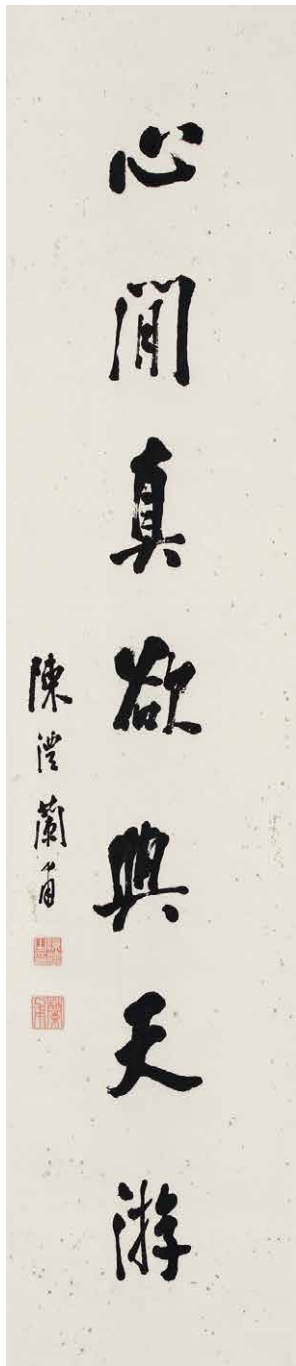 心閒真欲與天游
陳澧蘭甫